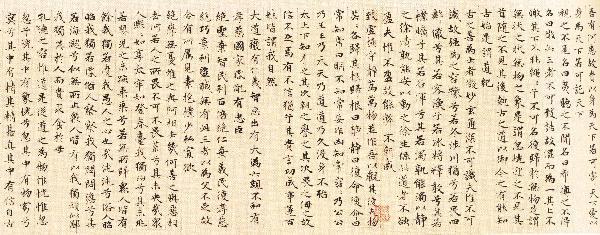 吾有何患故貴以身為天下者可寄天下愛以
身為天下者可託天下
視之不見名曰夷聽之不聞名曰希搏之不得
名曰微此三者不可致詰故混而為一其上不
皦其下不昧繩繩不可名復歸於無物是謂
無狀之狀無物之象是謂惚恍迎之不見其
首隨之不見其後執古之道以御今之有能知
古始是謂道紀
古之善為士者微妙玄通深不可識夫惟不可
識故強為之容豫兮若冬涉川猶兮若畏四
鄰儼若客渙若冰將釋敦兮其若
樸曠兮其若谷渾兮其若濁孰能濁以靜
之徐清孰能安以久之徐生保此道者不欲
盈夫惟不盈故能敝不新成
致虛極守靜篤萬物並作吾以觀其復夫物
芸芸各歸其根歸根曰靜靜曰復命復命曰
常知常曰明不知常妄作凶知常容容乃公公
乃王王乃天天乃道道乃久沒身不殆
太上下知有之其次親之譽之其次畏之侮之故
信不足焉有不信猶兮其貴言功成事遂百
姓皆謂我自然
大道廢有仁義智慧出有大偽六親不和有
孝慈國家昏亂有忠臣
絕聖棄智民利百倍絕仁棄義民復孝慈
絕巧棄利盜賊無有此三者以為文不足故
令有所屬見素抱樸少私寡欲
絕學無憂唯之與阿相去幾何善之與惡相
去何若人之所畏不可不畏荒兮其未央哉眾
人熙熙如享太牢如登春臺我獨泊兮其未兆
若嬰兒之未孩乘乘兮若無所歸眾人皆有
餘我獨若遺我愚人之心也哉沌沌兮俗人昭
昭我獨若昏俗人察察我獨悶悶澹兮其
若海飂兮若無所止眾人皆有以我獨頑似鄙
我獨異於人而貴求食於母
孔德之容惟道是從道之為物惟恍惟惚
惚兮恍其中有象恍兮惚其中有物窈兮
冥兮其中有精其精甚真其中有信自古